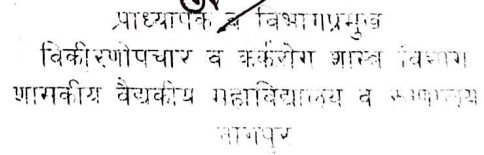 प्राध्यापक व विभागप्रमुख
विकीरणोपचार व कर्करोग शास्त्र विभाग
शासकीय वैद्यकीय महाविद्यालय व रूग्णालय
नागपुर